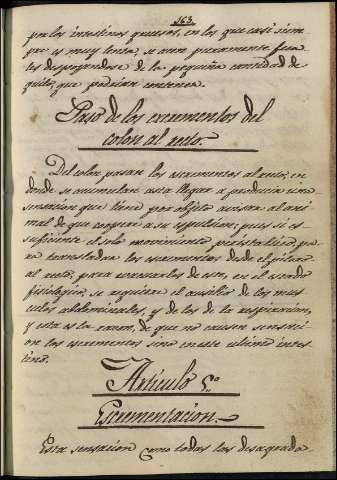 163.
por los intestinos gruesos, en los que casi siem-
pre es muy lenta, se unen puramente
tes despojandose de la pequeña cantidad de
quilo que podrian contener.
Paso de los excrementos del
colon al recto.
Del colon pasan los excrementos al recto, en
donde se acumulan asta llegar a producir una
sensacion que tiene por objeto avisar al ani
mal de que conviene a su espulsion; pues si es
suficiente el solo movimiento peristaltico pa
ra trasladar los escrementos desde el
al recto, para evacuarlos de este, en el estado
fisiologico, se requiere el ausilio de los mus
culos abdominales, y de los de la respiracion,
y esta es la razon, de que no causen sensacion
los escrementos sino en este ultimo intes
tino.
Articulo 5.º
Escrementacion.
Esta sensacion como todas las desagrada-